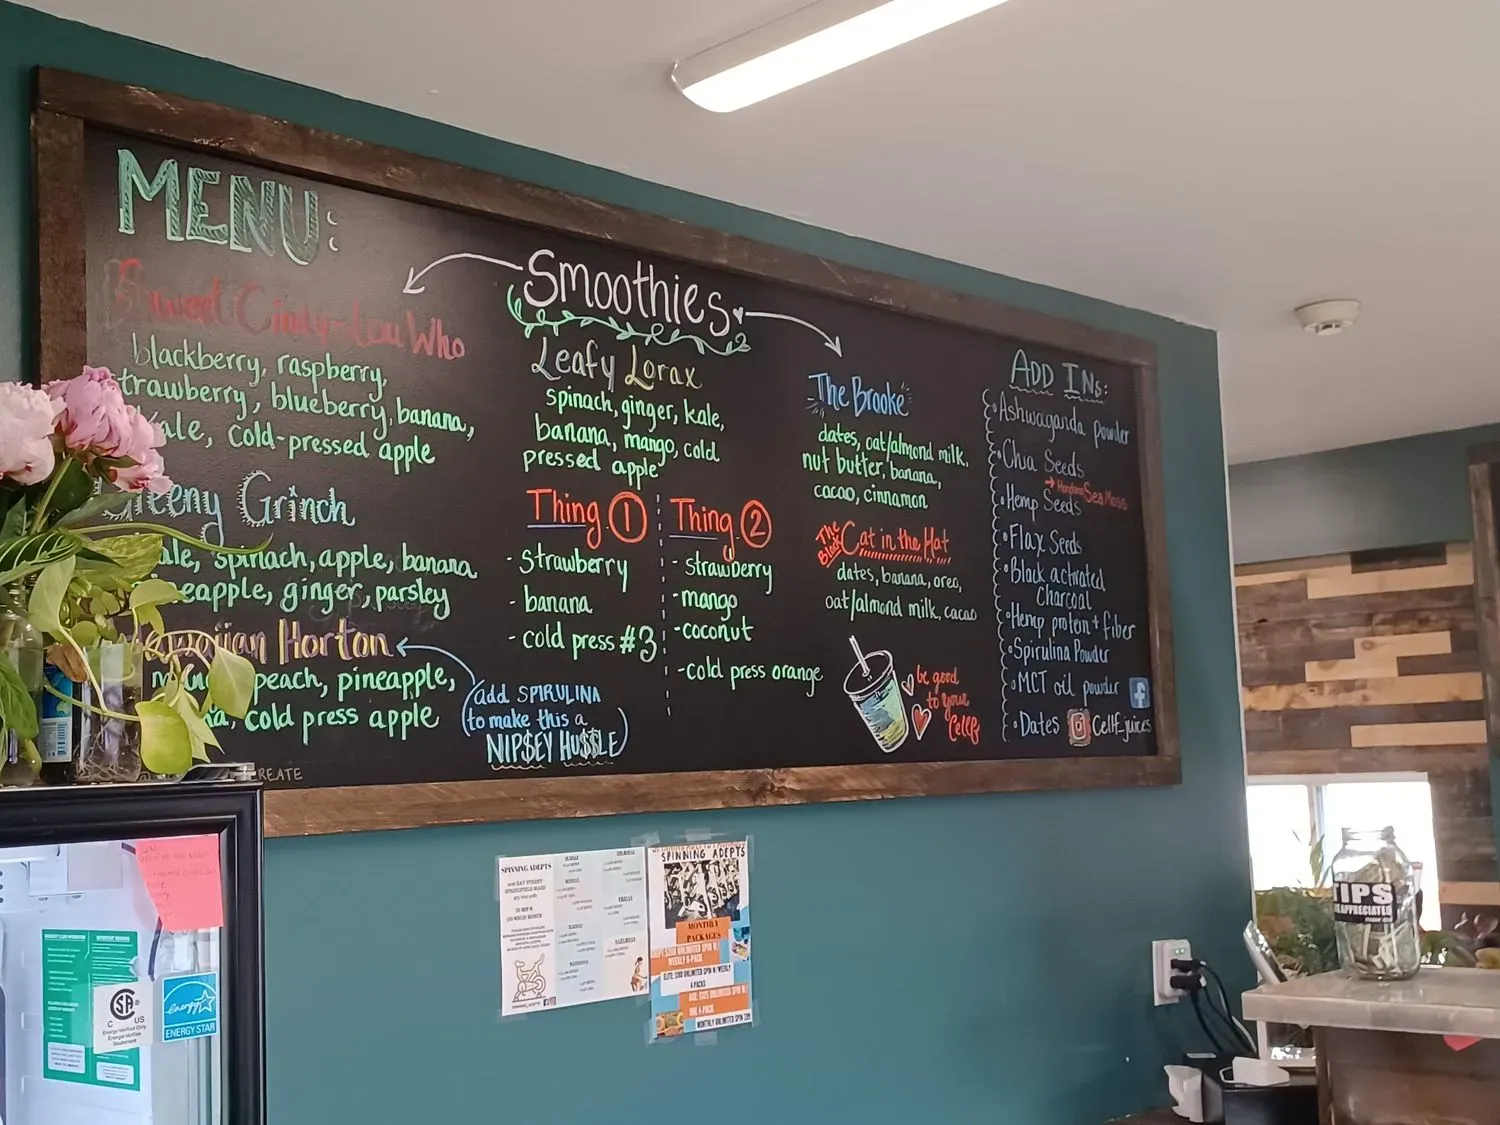 MENU:
Smoothies
Sweet Cindy-Lou Who
blackberry, raspberry,
trawberry, blueberry, banana,
kale, cold-pressed apple
Greeny Grinch
ale, spinach, apple, banana
eapple, ginger, parsley
Hawaiian Horton
peach, pineapple,
cold press apple
add SPIRULINA
to make this a
NIP$EY HU$$LE
CREATE
Leafy Lorax
spinach, ginger, kale,
banana, mango, cold
pressed apple
Thing 1
- strawberry
- banana
- cold press #3
Thing 2
- strawberry
- mango
- coconut
- cold press orange
The Brooke
dates, oat/almond milk,
nut butter, banana,
cacao, cinnamon
The Black Cat in the Hat
dates, banana, oreo,
oat/almond milk, cacao
be good
to your
Cellf
ADD INs:
• Ashwaganda powder
• Chia Seeds
→ Honduran Sea Moss
• Hemp Seeds
• Flax Seeds
• Black activated
charcoal
• Hemp protein + fiber
• Spirulina Powder
• MCT oil powder
• Dates
Cellf_juices
SPINNING ADEPTS
SPINNING ADEPTS
MONTHLY
PACKAGES
WEEKLY 6-PACK
ELITE: $180 UNLIMITED SPIN W/ WEEKLY
4-PACKS
ONE 4-PACK
MONTHLY UNLIMITED SPIN $99
CSA
C US
Energy Verified Only
energy
ENERGY STAR
TIPS
APPRECIATED